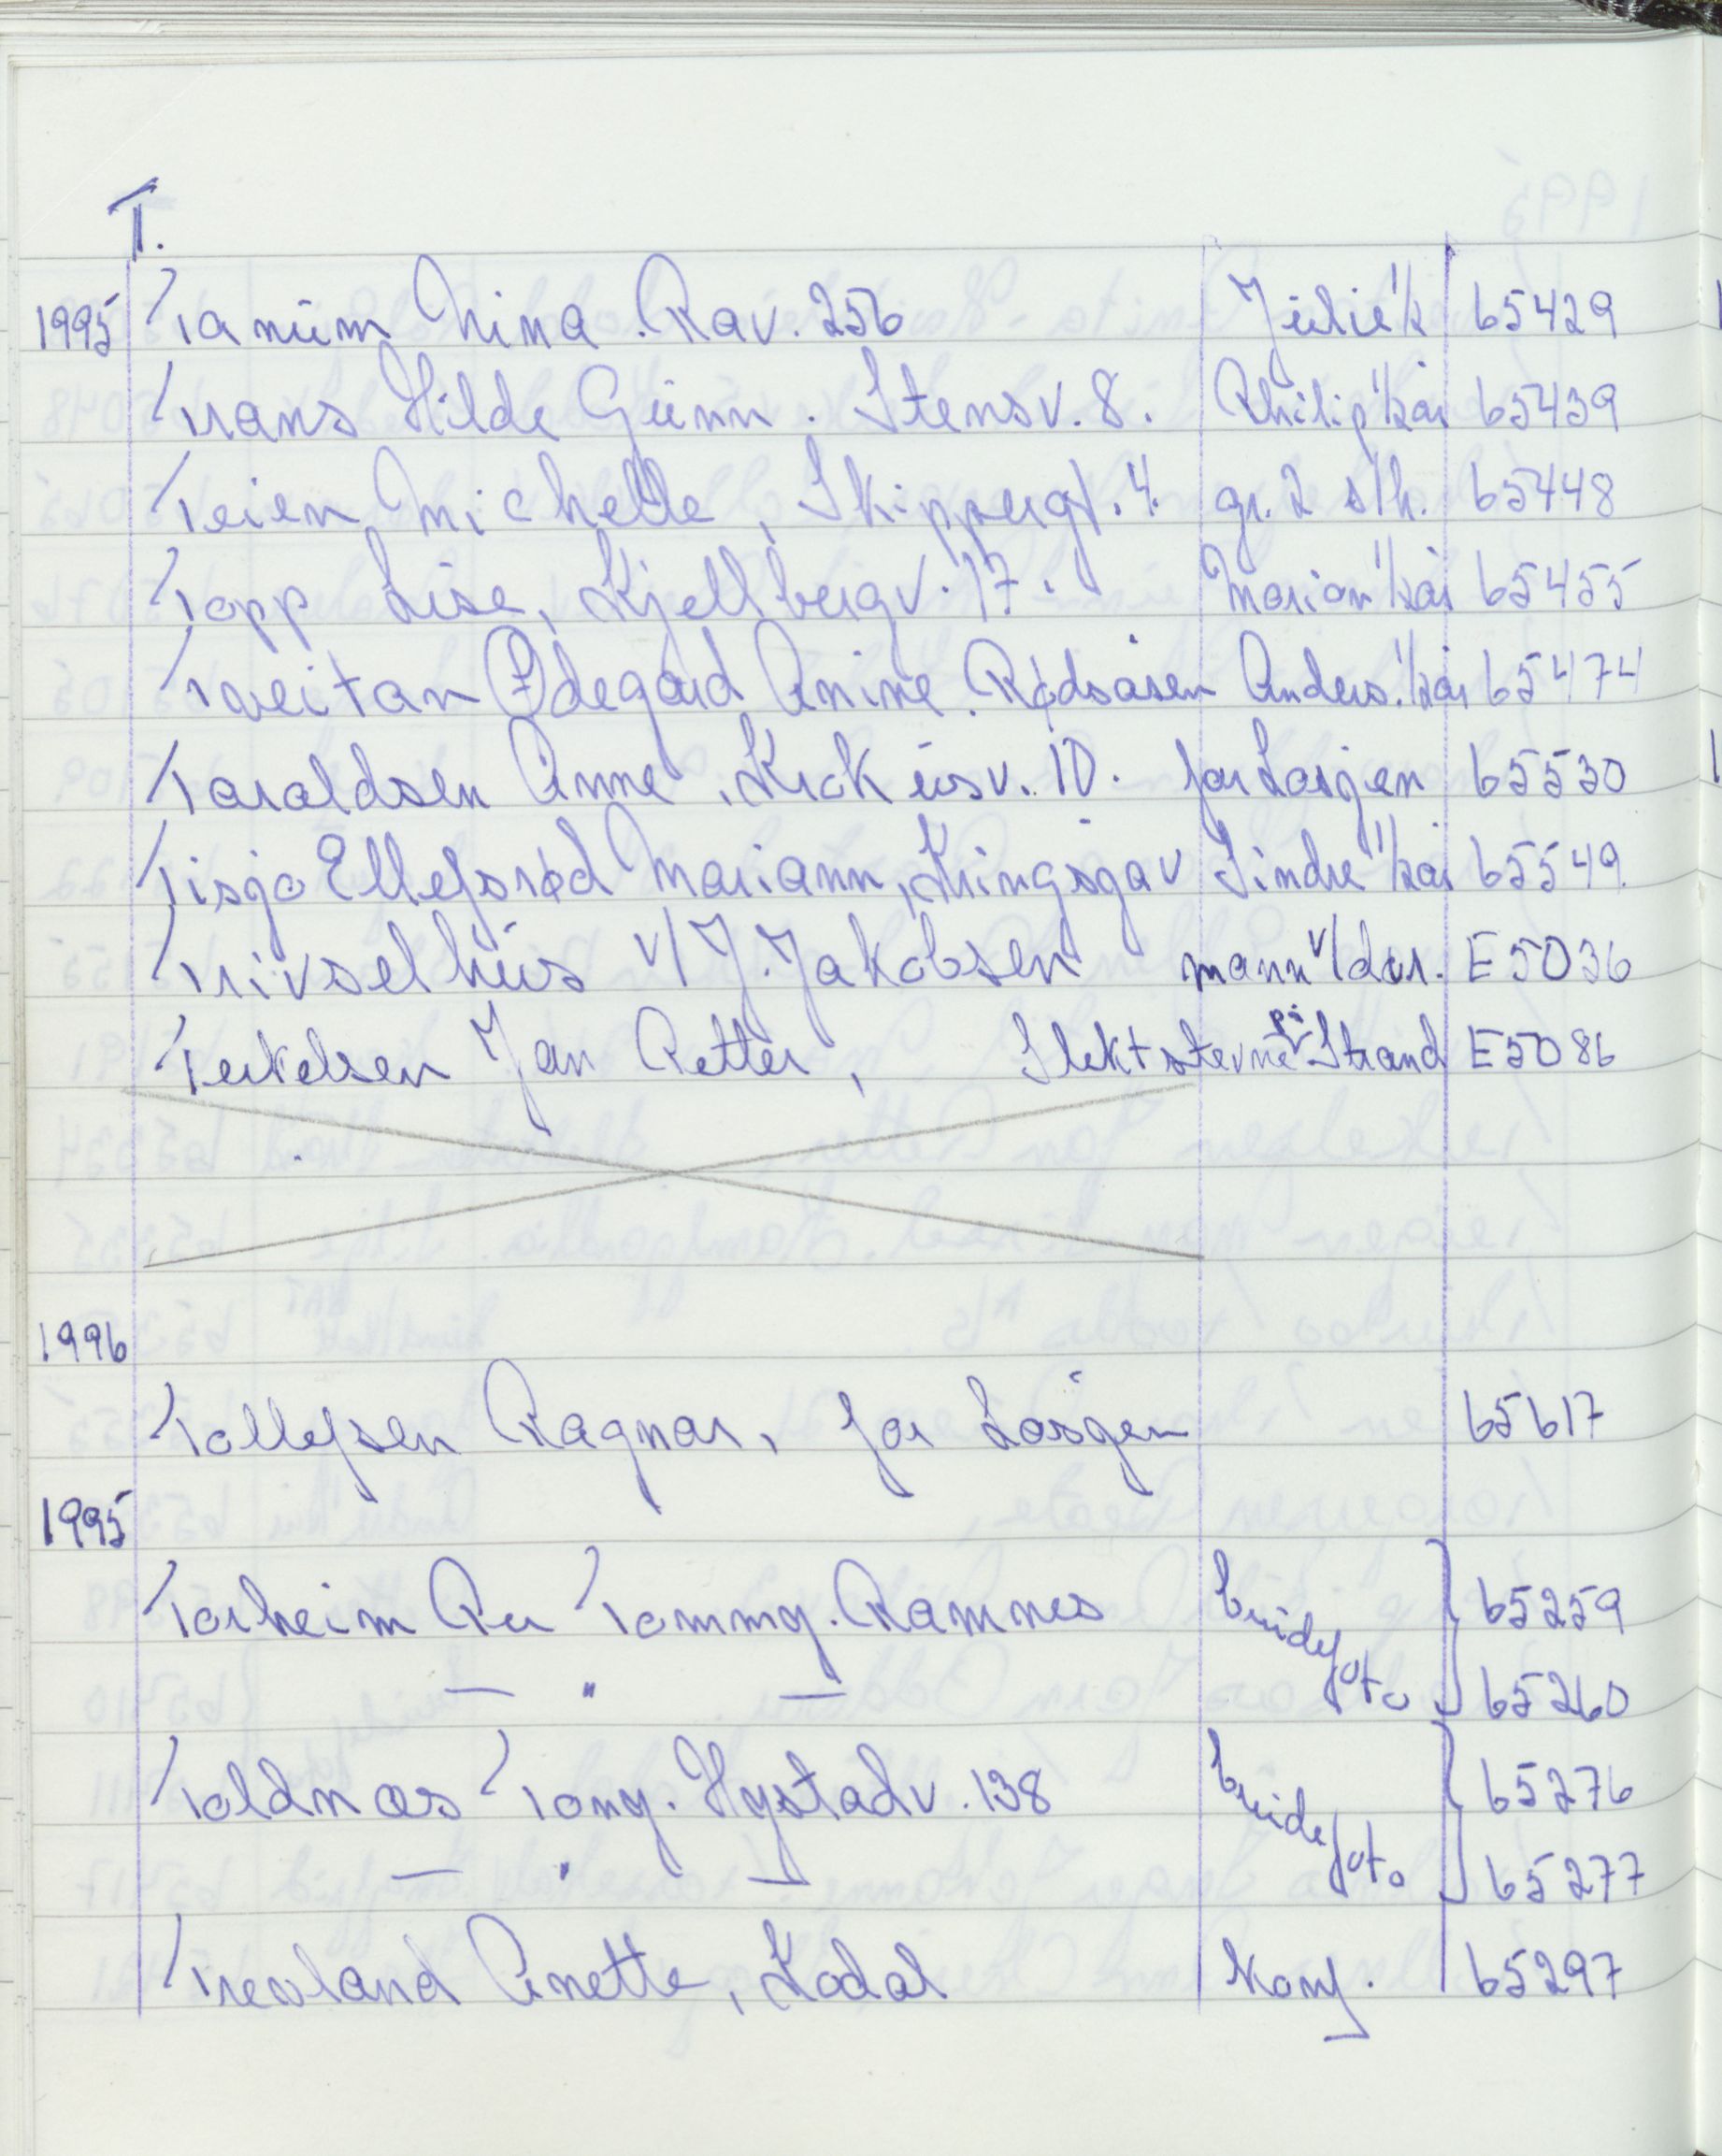 T.
1995 Tanum Nina. Rav. 256 Julie 1/2 65429
Trans Hilde Gunn. Stensv. 8. Philip 1/2 år 65439
Teien Michelle, Skippergt. 4. gr. 2 s/h. 65448
Topp Lise, Kjellbergv. 17. Marian 1/2 år 65455
Tveitan Ødegård Anine. Rødsåsen Anders. 1/2 år 65474
Taraldsen Anne, Krokusv. 10. for Lasjen 65530
Tisjø Ellefsrød Mariann, Kringsgav Sindre 1/2 år 65549.
Trivselhus v/ J. Jakobsen mann v/dør. E5036
Terkelsen Jan Petter, Slektstevne på Strand E5086
1996
Tollefsen Ragnar, for Losjen 65617
1995
Torheim Per Tommy. Ramnes brudefoto 65259
— " — 65260
Toldnæs Tony. Hystadv. 138 brudefoto 65276
— " — 65277
Trevland Anette, Kodal Konf. 65297